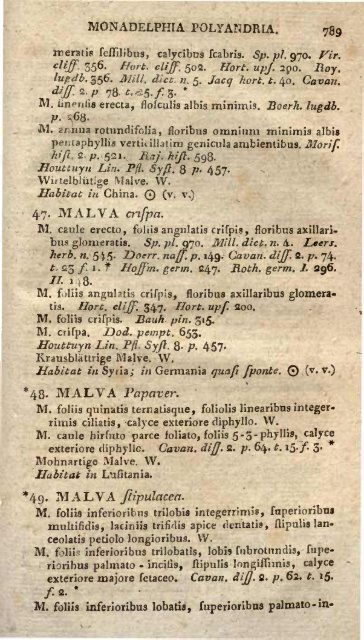 MONADELPHIA POLYANDRIA. 789
meratis ſeſſilibus, calycibus ſcabris. Sp. pl. 970. Vir.
cliff. 356. Hort. cliff. 502. Hort. upſ. 290. Roy.
lugdb. 356. Mill. dict. n. 5. Jacq hort. t. 40. Cavan.
diſſ. 2. p 78. t. 25. f. 3. *
M. ſinenſis erecta, floſculis albis minimis. Boerh. lugdb.
p. 268.
M. annua rotundifolia, floribus omnium minimis albis
pentaphyllis verticillatim genicula ambientibus. Moriſ.
hiſt. 2. p. 521. Raj. hiſt. 598.
Houttuyn Lin. Pfl. Syſt. 8 p. 457.
Wirtelblütige Malve. W.
Habitat in China. ☉ (v. v.)
47. MALVA criſpa.
M. caule erecto, foliis angulatis criſpis, floribus axillari-
bus glomeratis. Sp. pl. 970. Mill. dict. n. 4. Leers.
herb. n. 545. Doerr. naſſ. p. 149. Cavan. diſſ. 2. p. 74.
t. 23 f. 1. * Hoffm. germ. 247. Roth. germ. I. 296.
II. 148.
M. foliis angulatis criſpis, floribus axillaribus glomera-
tis. Hort. cliff. 347. Hort. upſ. 200.
M. foliis criſpis. Bauh. pin. 315.
M. criſpa. Dod. pempt. 653.
Houttuyn Lin. Pfl. Syſt. 8. p. 457.
Krausblättrige Malve. W.
Habitat in Syria; in Germania quaſi ſponte. ☉ (v. v.)
*48. MALVA Papaver.
M. foliis quinatis ternatisque, foliolis linearibus integer-
rimis ciliatis, calyce exteriore diphyllo. W.
M. caule hirſuto parce foliato, foliis 5-3-phyllis, calyce
exteriore diphyllo. Cavan. diſſ. 2. p. 64. t. 15. f. 3. *
Mohnartige Malve. W.
Habitat in Luſitania.
*49. MALVA ſtipulacea.
M. foliis inferioribus trilobis integerrimis, ſuperioribus
multifidis, laciniis trifidis apice dentatis, ſtipulis lan-
ceolatis petiolo longioribus. W.
M. foliis inferioribus trilobatis, lobis ſubrotundis, ſupe-
rioribus palmato-inciſis, ſtipulis longiſſimis, calyce
exteriore majore ſetaceo. Cavan. diſſ. 2. p. 62. t. 15.
f. 2. *
M. foliis inferioribus lobatis, ſuperioribus palmato-in-